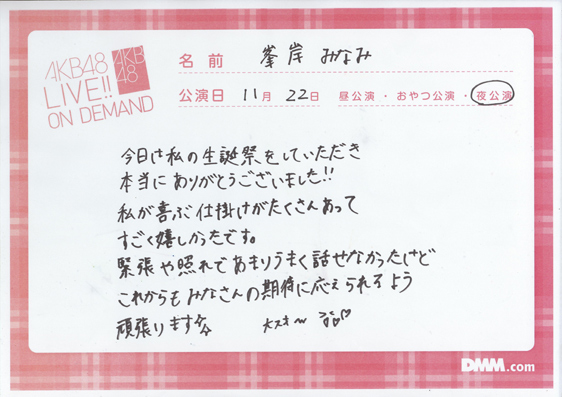 AKB48
LIVE!!
ON DEMAND
AKB
48
名前 峯岸 みなみ
公演日 11月 22日 昼公演・おやつ公演・夜公演
今日は私の生誕祭をしていただき
本当にありがとうございました!!
私が喜ぶ仕掛けがたくさんあって
すごく嬉しかったです。
緊張や照れであまりうまく話せなかったけど
これからもみなさんの期待に応えられるよう
頑張ります
大スキ〜
DMM.com